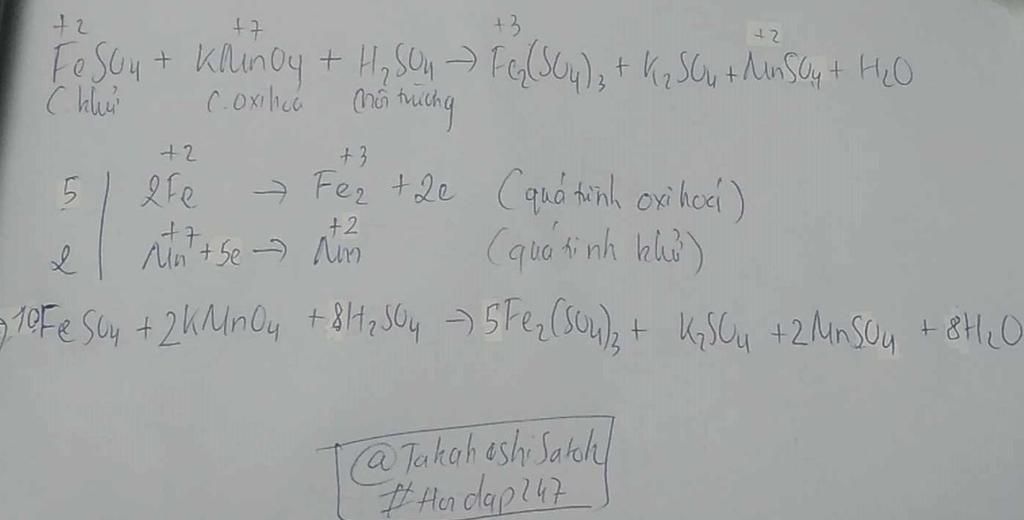 +2 +7 +3 +2
FeSO4 + KMnO4 + H2SO4 → Fe2(SO4)3 + K2SO4 + MnSO4 + H2O
C khử C. oxi hoá Môi trường
+2 +3
5 | 2Fe → Fe2 + 2e (quá trình oxi hoá)
+7 +2
2 | Mn + 5e → Mn (quá trình khử)
10FeSO4 + 2KMnO4 + 8H2SO4 → 5Fe2(SO4)3 + K2SO4 + 2MnSO4 + 8H2O
@TakahashiSatoh
#Hoidap247